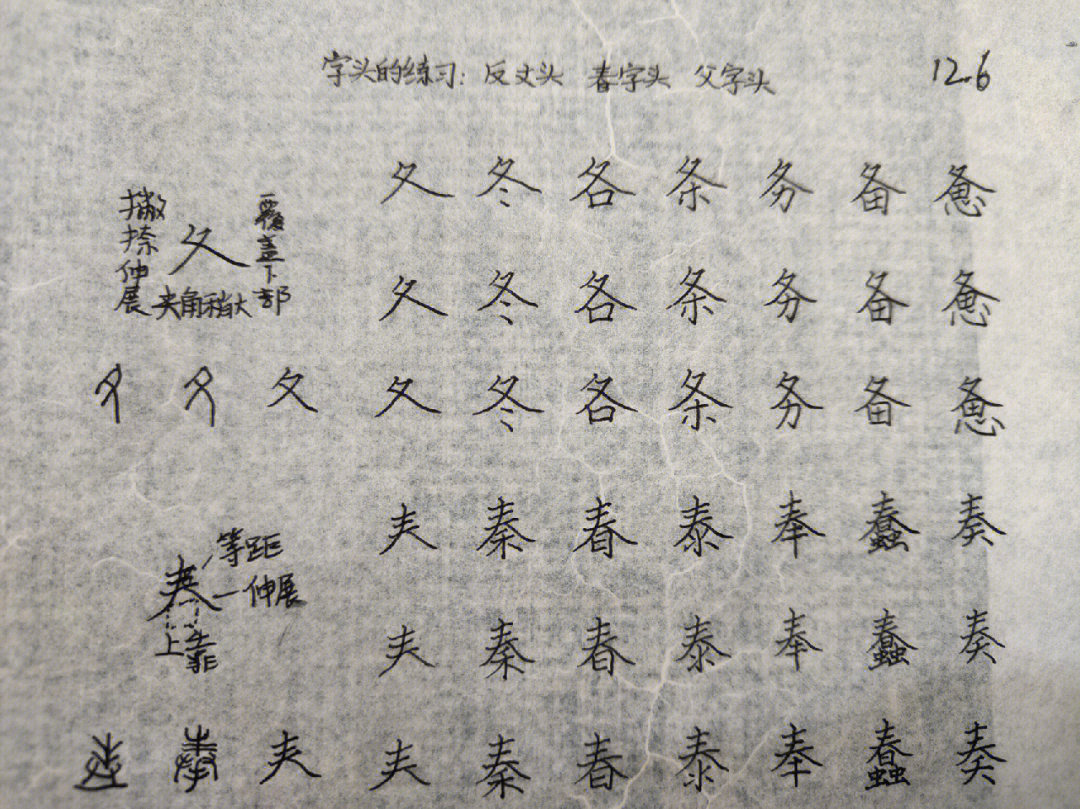 字头的练习: 反文头 春字头 父字头 12.6
夂 冬 各 条 务 备 惫
撇捺伸展
夂
覆盖下部
夹角稍大
夂 冬 各 条 务 备 惫
夂 夂 冬 各 条 务 备 惫
𡗗 秦 春 泰 奉 蠢 奏
等距
𡗗
伸展
上靠
𡗗 秦 春 泰 奉 蠢 奏
𡗗 𡗗 秦 春 泰 奉 蠢 奏